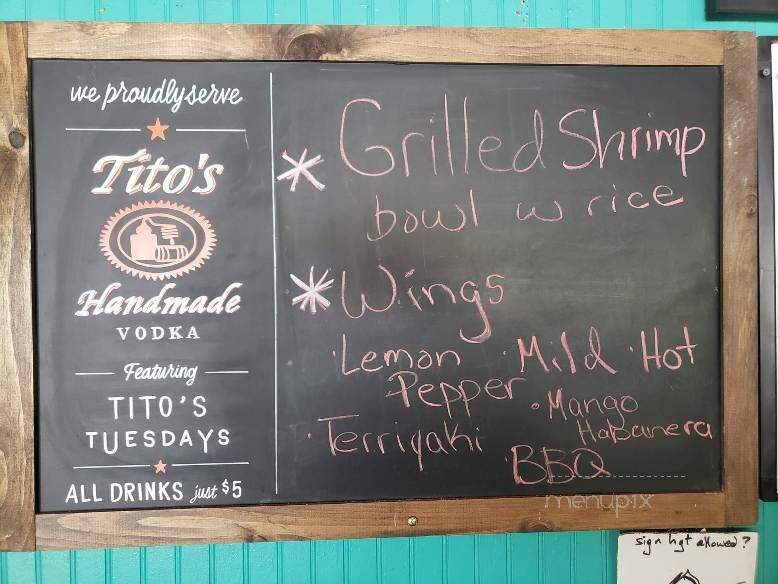 we proudly serve
Tito's
Handmade
VODKA
Featuring
TITO'S
TUESDAYS
ALL DRINKS just $5
* Grilled Shrimp
bowl w rice
* Wings
· Lemon · Mild · Hot
Pepper · Mango
Habanera
· Terriyaki
BBQ
menupix
sign hgt allowed?